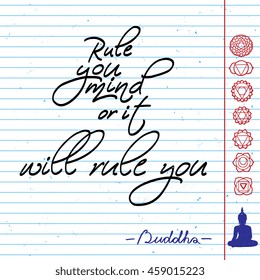 Rule
you
mind
or it
will rule you
-Buddha-
shutterstock.com · 459015223